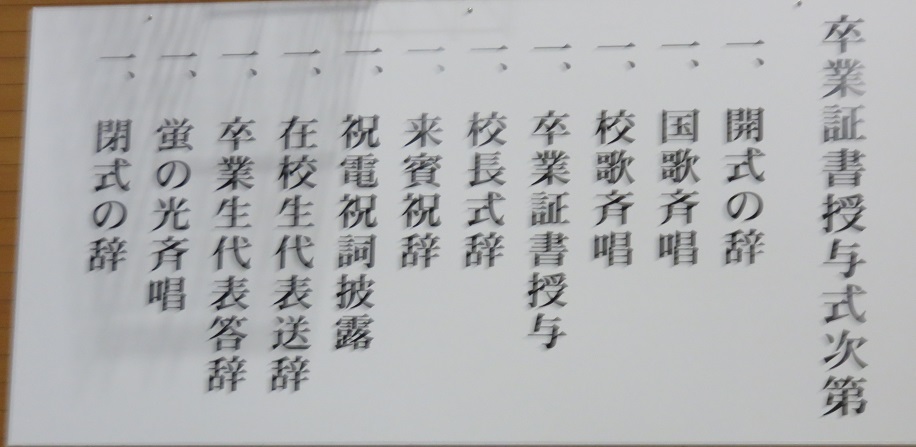 卒業証書授与式次第
一、開式の辞
一、国歌斉唱
一、校歌斉唱
一、卒業証書授与
一、校長式辞
一、来賓祝辞
一、祝電祝詞披露
一、在校生代表送辞
一、卒業生代表答辞
一、蛍の光斉唱
一、閉式の辞